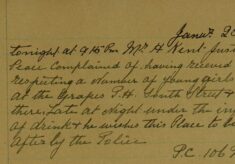 Janur 20
tonight at 9.15 Pm Mr H Kent Jus
Peace Complained of having received
respecting a Number of young girls
at the Grapes P.H. South Street
there Late at Night under the in
of drink & he wishes this Place to be
after by the Police
P.C. 106